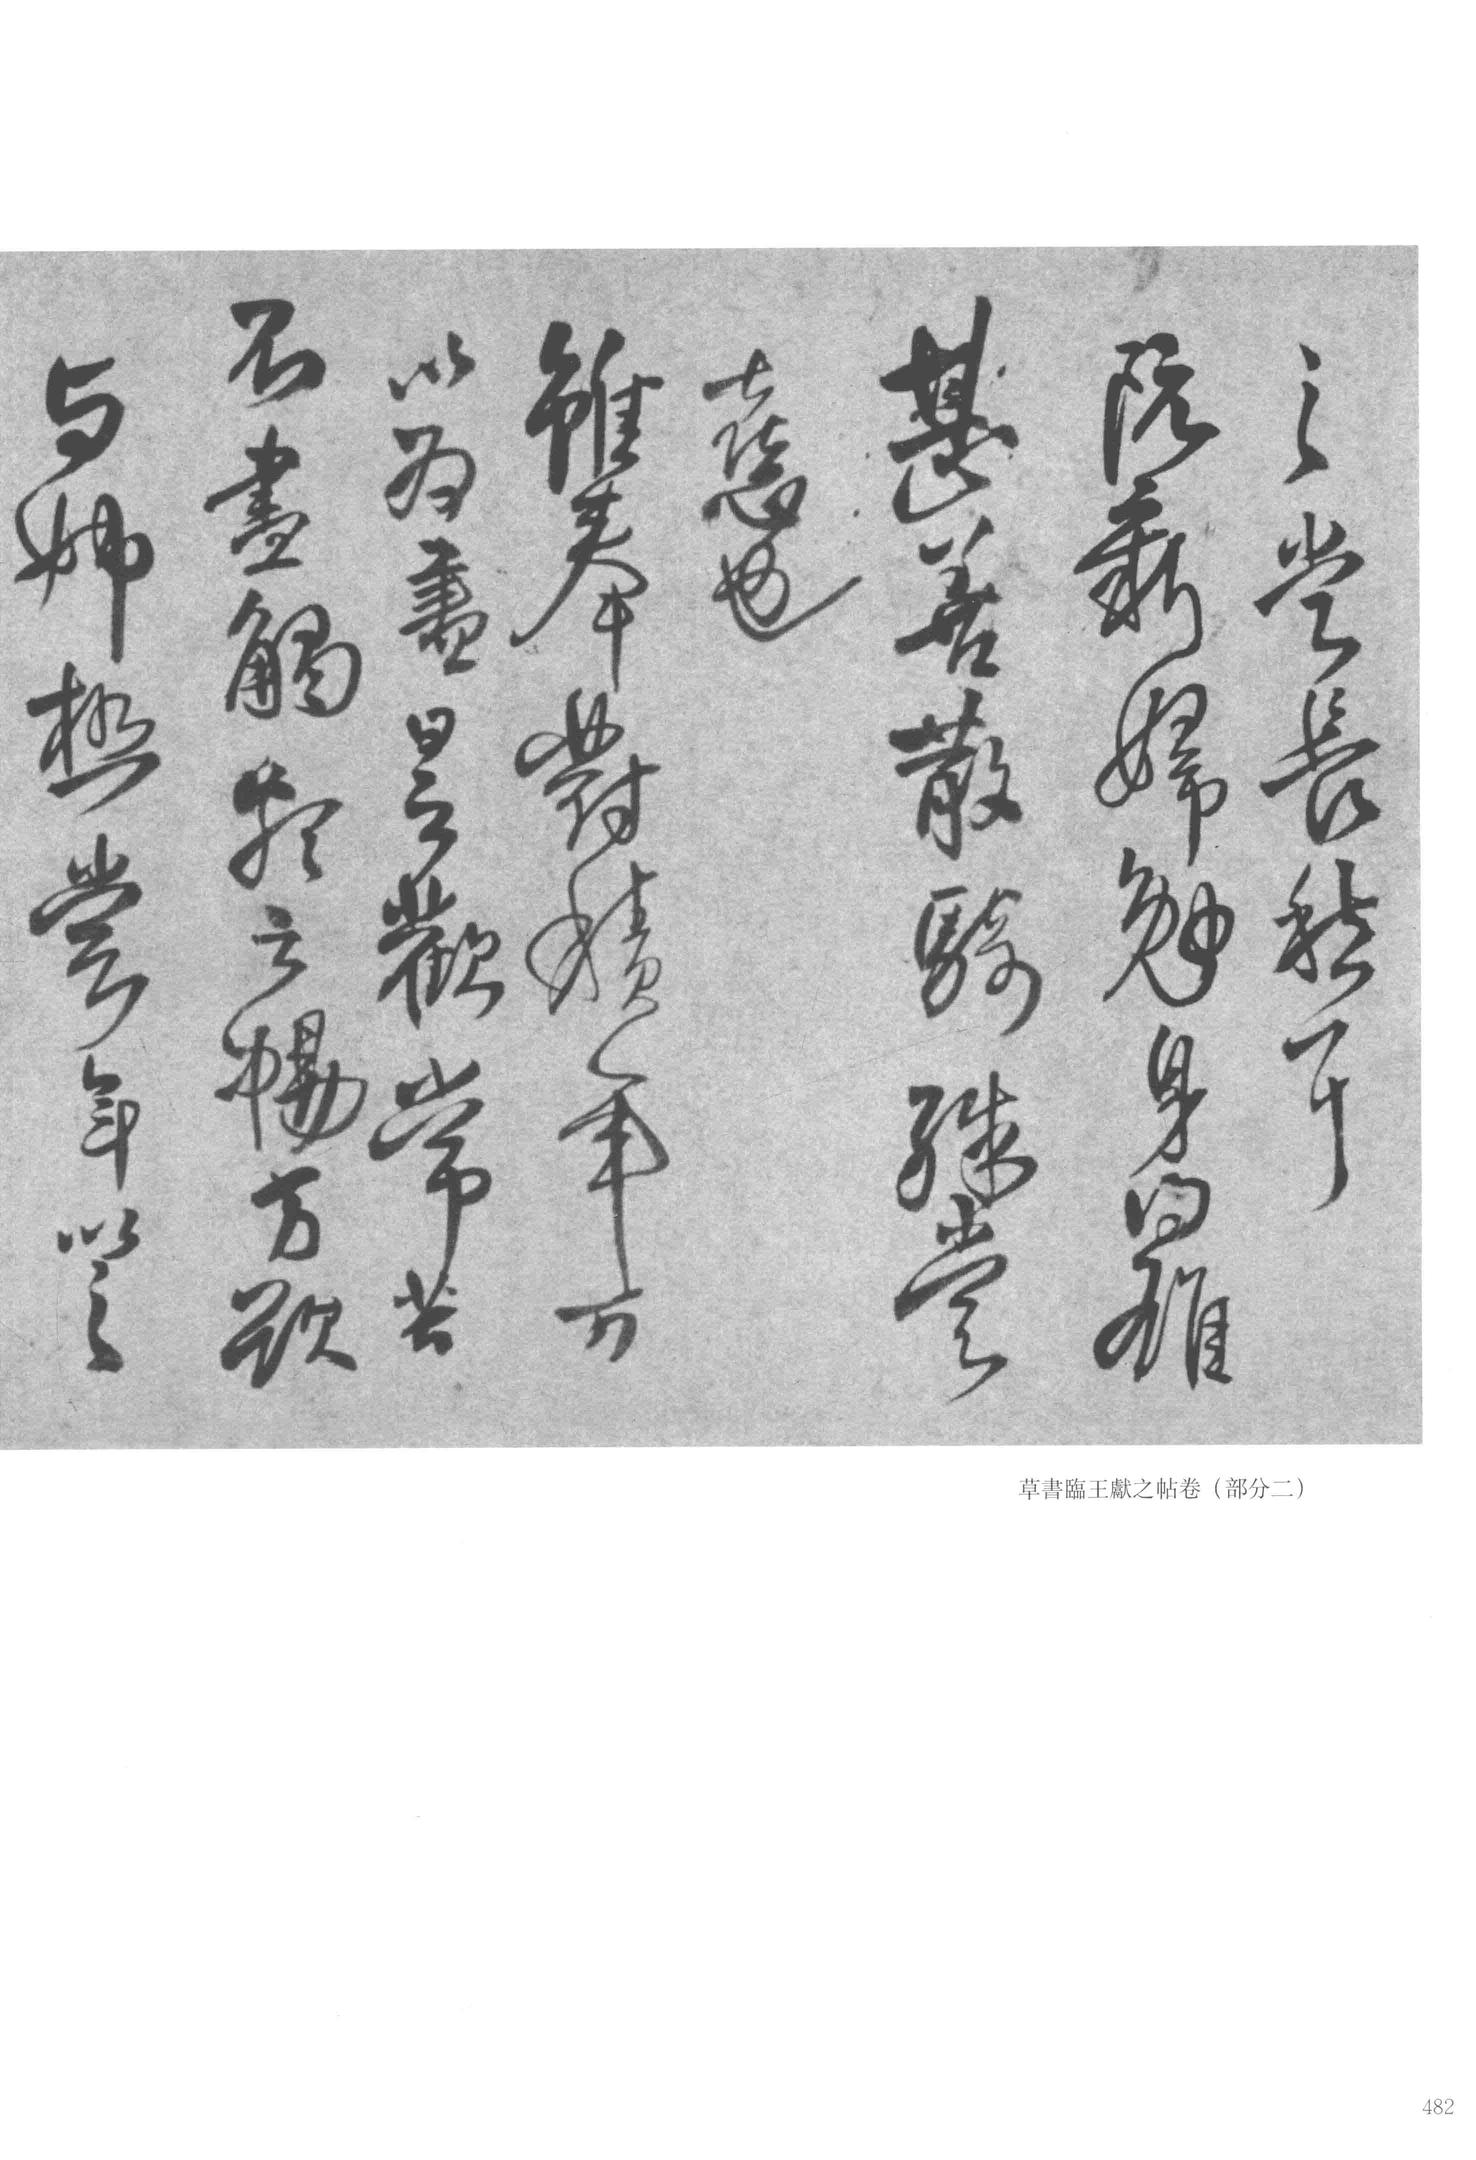 之當長愁耳
阮新婦勉身得雄
甚善散騎殊當
憙也
雖奉對積年可
以為盡日之歡常苦
不盡觸類之暢方欲
与姊極當年以之
草書臨王獻之帖卷（部分二）
482